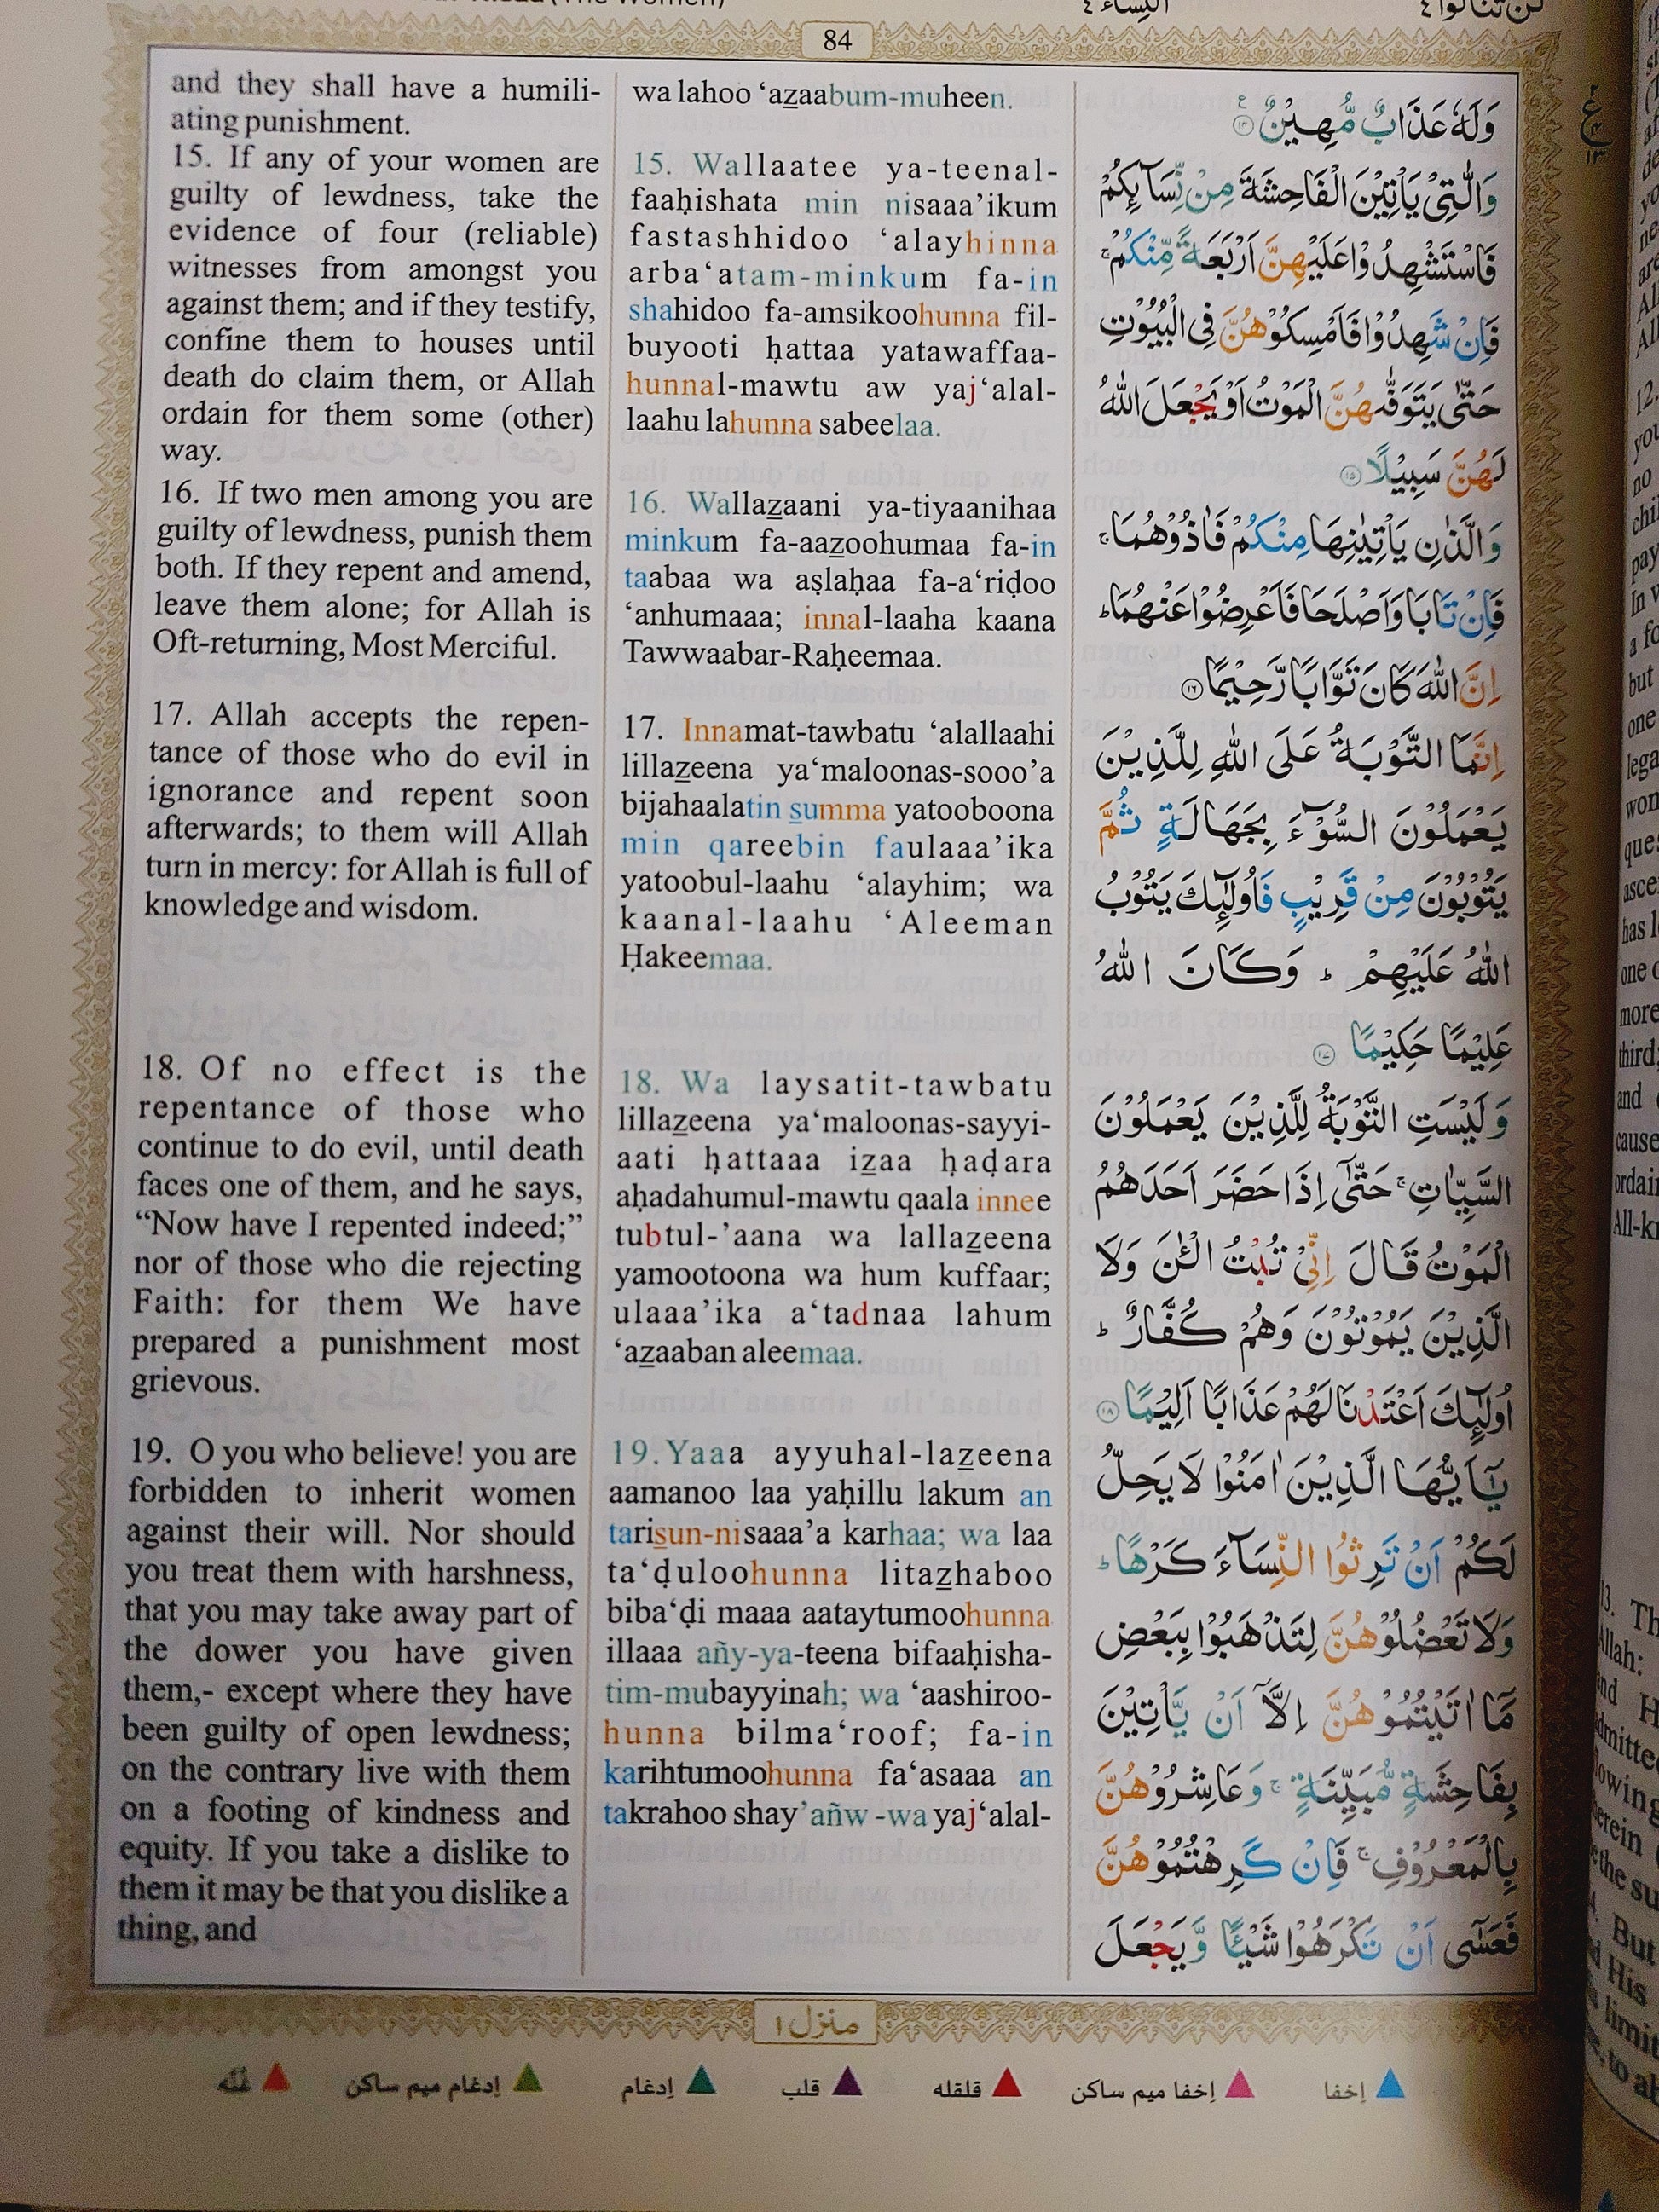 (The Women)
النساء ٤
لن تنالوا ٤
84
and they shall have a humili-
ating punishment.
15. If any of your women are
guilty of lewdness, take the
evidence of four (reliable)
witnesses from amongst you
against them; and if they testify,
confine them to houses until
death do claim them, or Allah
ordain for them some (other)
way.
16. If two men among you are
guilty of lewdness, punish them
both. If they repent and amend,
leave them alone; for Allah is
Oft-returning, Most Merciful.
17. Allah accepts the repen-
tance of those who do evil in
ignorance and repent soon
afterwards; to them will Allah
turn in mercy: for Allah is full of
knowledge and wisdom.
18. Of no effect is the
repentance of those who
continue to do evil, until death
faces one of them, and he says,
“Now have I repented indeed;”
nor of those who die rejecting
Faith: for them We have
prepared a punishment most
grievous.
19. O you who believe! you are
forbidden to inherit women
against their will. Nor should
you treat them with harshness,
that you may take away part of
the dower you have given
them,- except where they have
been guilty of open lewdness;
on the contrary live with them
on a footing of kindness and
equity. If you take a dislike to
them it may be that you dislike a
thing, and
wa lahoo ‘azaabum-muheen.
15. Wallaatee ya-teenal-
faaḥishata min nisaaa’ikum
fastashhidoo ‘alayhinna
arba‘atam-minkum fa-in
shahidoo fa-amsikoohunna fil-
buyooti ḥattaa yatawaffaa-
hunnal-mawtu aw yaj‘alal-
laahu lahunna sabeelaa.
16. Wallazaani ya-tiyaanihaa
minkum fa-aazoohumaa fa-in
taabaa wa aṣlaḥaa fa-a‘riḍoo
‘anhumaaa; innal-laaha kaana
Tawwaabar-Raḥeemaa.
17. Innamat-tawbatu ‘alallaahi
lillazeena ya‘maloonas-sooo’a
bijahaalatin summa yatooboona
min qareebin faulaaa’ika
yatoobul-laahu ‘alayhim; wa
kaanal-laahu ‘Aleeman
Ḥakeemaa.
18. Wa laysatit-tawbatu
lillazeena ya‘maloonas-sayyi-
aati ḥattaaa izaa ḥaḍara
aḥadahumul-mawtu qaala innee
tubtul-’aana wa lallazeena
yamootoona wa hum kuffaar;
ulaaa’ika a‘tadnaa lahum
‘azaaban aleemaa.
19. Yaaa ayyuhal-lazeena
aamanoo laa yaḥillu lakum an
tarisun-nisaaa’a karhaa; wa laa
ta‘ḍuloohunna litazhaboo
biba‘ḍi maaa aataytumoohunna
illaaa añy-ya-teena bifaaḥisha-
tim-mubayyinah; wa ‘aashiroo-
hunna bilma‘roof; fa-in
karihtumoohunna fa‘asaaa an
takrahoo shay’añw -wa yaj‘alal-
وَلَهٗ عَذَابٌ مُّهِيْنٌ ۝١٤
وَالّٰتِيْ يَاْتِيْنَ الْفَاحِشَةَ مِنْ نِّسَآىِٕكُمْ
فَاسْتَشْهِدُوْا عَلَيْهِنَّ اَرْبَعَةً مِّنْكُمْ ۚ
فَاِنْ شَهِدُوْا فَاَمْسِكُوْهُنَّ فِى الْبُيُوْتِ
حَتّٰى يَتَوَفّٰىهُنَّ الْمَوْتُ اَوْ يَجْعَلَ اللّٰهُ
لَهُنَّ سَبِيْلًا ۝١٥
وَالَّذٰنِ يَاْتِيٰنِهَا مِنْكُمْ فَاٰذُوْهُمَا ۚ
فَاِنْ تَابَا وَاَصْلَحَا فَاَعْرِضُوْا عَنْهُمَا ؕ
اِنَّ اللّٰهَ كَانَ تَوَّابًا رَّحِيْمًا ۝١٦
اِنَّمَا التَّوْبَةُ عَلَى اللّٰهِ لِلَّذِيْنَ
يَعْمَلُوْنَ السُّوْٓءَ بِجَهَالَةٍ ثُمَّ
يَتُوْبُوْنَ مِنْ قَرِيْبٍ فَاُولٰٓىِٕكَ يَتُوْبُ
اللّٰهُ عَلَيْهِمْ ؕ وَكَانَ اللّٰهُ
عَلِيْمًا حَكِيْمًا ۝١٧
وَلَيْسَتِ التَّوْبَةُ لِلَّذِيْنَ يَعْمَلُوْنَ
السَّيِّاٰتِ ۚ حَتّٰٓى اِذَا حَضَرَ اَحَدَهُمُ
الْمَوْتُ قَالَ اِنِّيْ تُبْتُ الْـٰٔنَ وَلَا
الَّذِيْنَ يَمُوْتُوْنَ وَهُمْ كُفَّارٌ ؕ
اُولٰٓىِٕكَ اَعْتَدْنَا لَهُمْ عَذَابًا اَلِيْمًا ۝١٨
يٰۤاَيُّهَا الَّذِيْنَ اٰمَنُوْا لَا يَحِلُّ
لَكُمْ اَنْ تَرِثُوا النِّسَآءَ كَرْهًا ؕ
وَلَا تَعْضُلُوْهُنَّ لِتَذْهَبُوْا بِبَعْضِ
مَاۤ اٰتَيْتُمُوْهُنَّ اِلَّاۤ اَنْ يَّاْتِيْنَ
بِفَاحِشَةٍ مُّبَيِّنَةٍ ۚ وَعَاشِرُوْهُنَّ
بِالْمَعْرُوْفِ ۚ فَاِنْ كَرِهْتُمُوْهُنَّ
فَعَسٰٓى اَنْ تَكْرَهُوْا شَيْـًٔا وَّيَجْعَلَ
منزل ١
اِخفا
اِخفا ميم ساكن
قلقله
قلب
اِدغام
اِدغام ميم ساكن
غُنّه